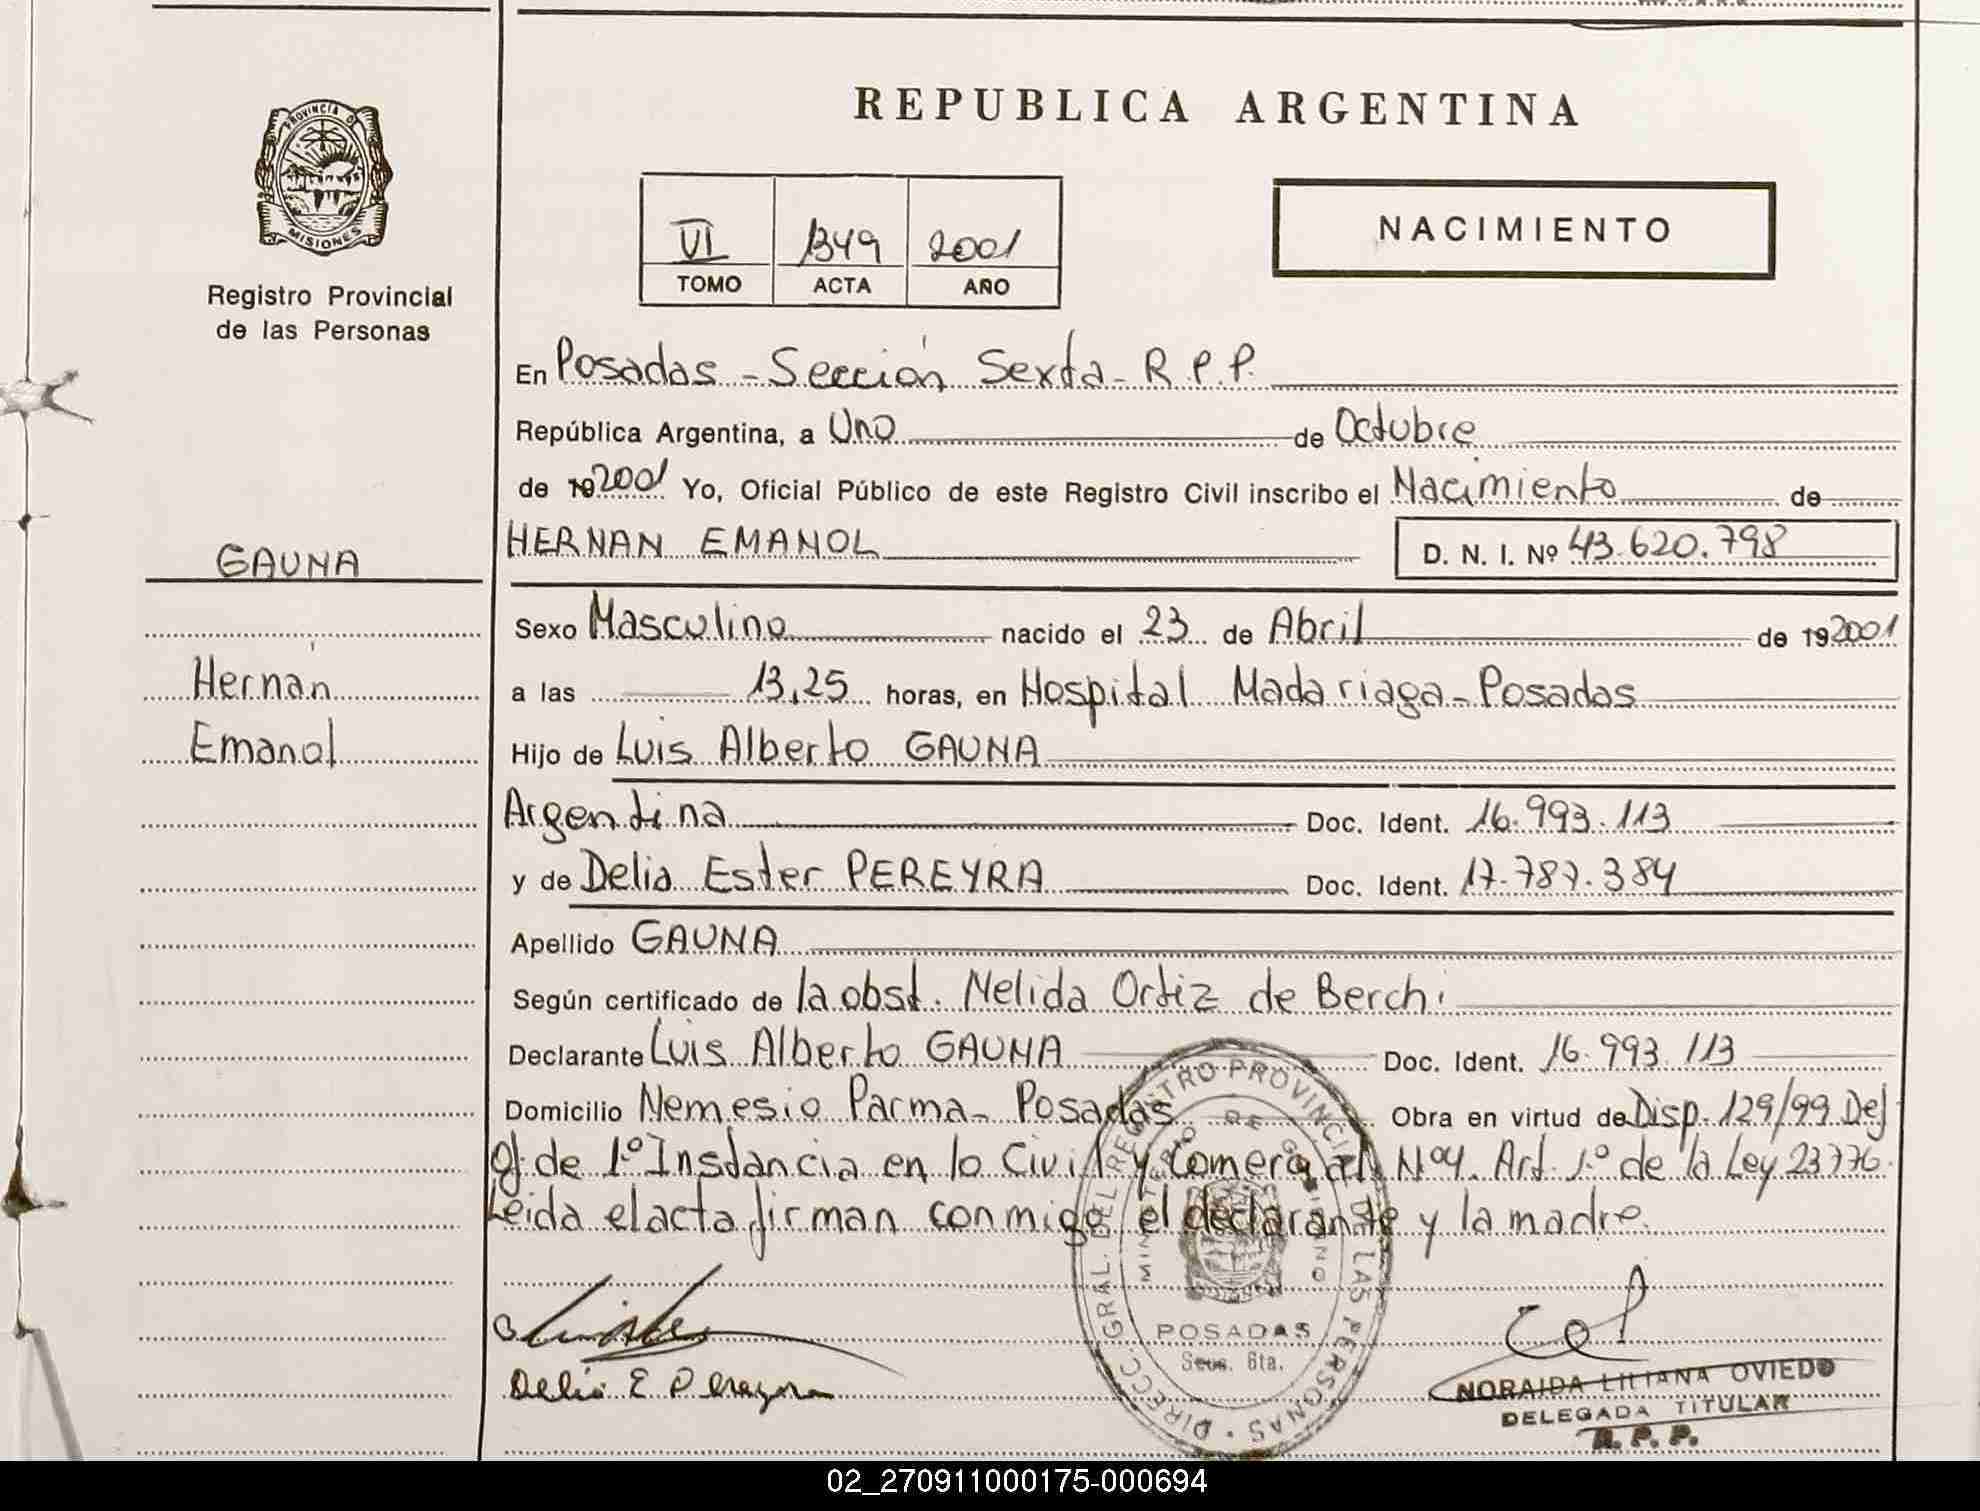 REPUBLICA ARGENTINA
PROVINCIA DE
MISIONES
Registro Provincial
de las Personas
VI 1349 2001
TOMO ACTA AÑO
NACIMIENTO
En Posadas - Sección Sexta - R.P.P.
República Argentina, a Uno de Octubre
de 192001 Yo, Oficial Público de este Registro Civil inscribo el Nacimiento de
HERNAN EMANOL D. N. I. Nº 43.620.798
GAUNA
Hernán
Emanol
Sexo Masculino nacido el 23 de Abril de 192001
a las 13,25 horas, en Hospital Madariaga - Posadas
Hijo de Luis Alberto GAUNA
Argentina Doc. Ident. 16.993.113
y de Delia Ester PEREYRA Doc. Ident. 17.787.384
Apellido GAUNA
Según certificado de la obst. Nelida Ortiz de Berchi
Declarante Luis Alberto GAUNA Doc. Ident. 16.993.113
Domicilio Nemesio Parma - Posadas Obra en virtud de Disp. 129/99 Del
gj. de 1º Instancia en lo Civil y Comercial Nº4. Art. 1º de la Ley 23776.
Leida el acta firman conmigo el declarante y la madre.
DIRECC. GRAL. DEL REGISTRO PROVINCIAL DE LAS PERSONAS
MINISTERIO DE GOBIERNO
POSADAS
Secc. 6ta.
Delia E Pereyra
NORAIDA LILIANA OVIEDO
DELEGADA TITULAR
R. P. P.
02_270911000175-000694